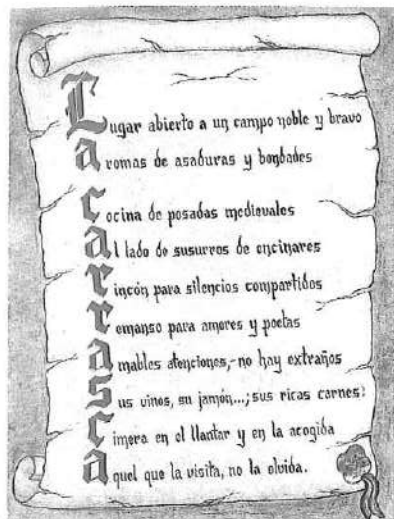 Lugar abierto a un campo noble y bravo
aromas de asaduras y bondades
cocina de posadas medievales
al lado de susurros de encinares
rincón para silencios compartidos
remanso para amores y poetas
amables atenciones,-no hay extraños
sus vinos, su jamón...; sus ricas carnes:
cimera en el llantar y en la acogida
aquel que la visita, no la olvida.